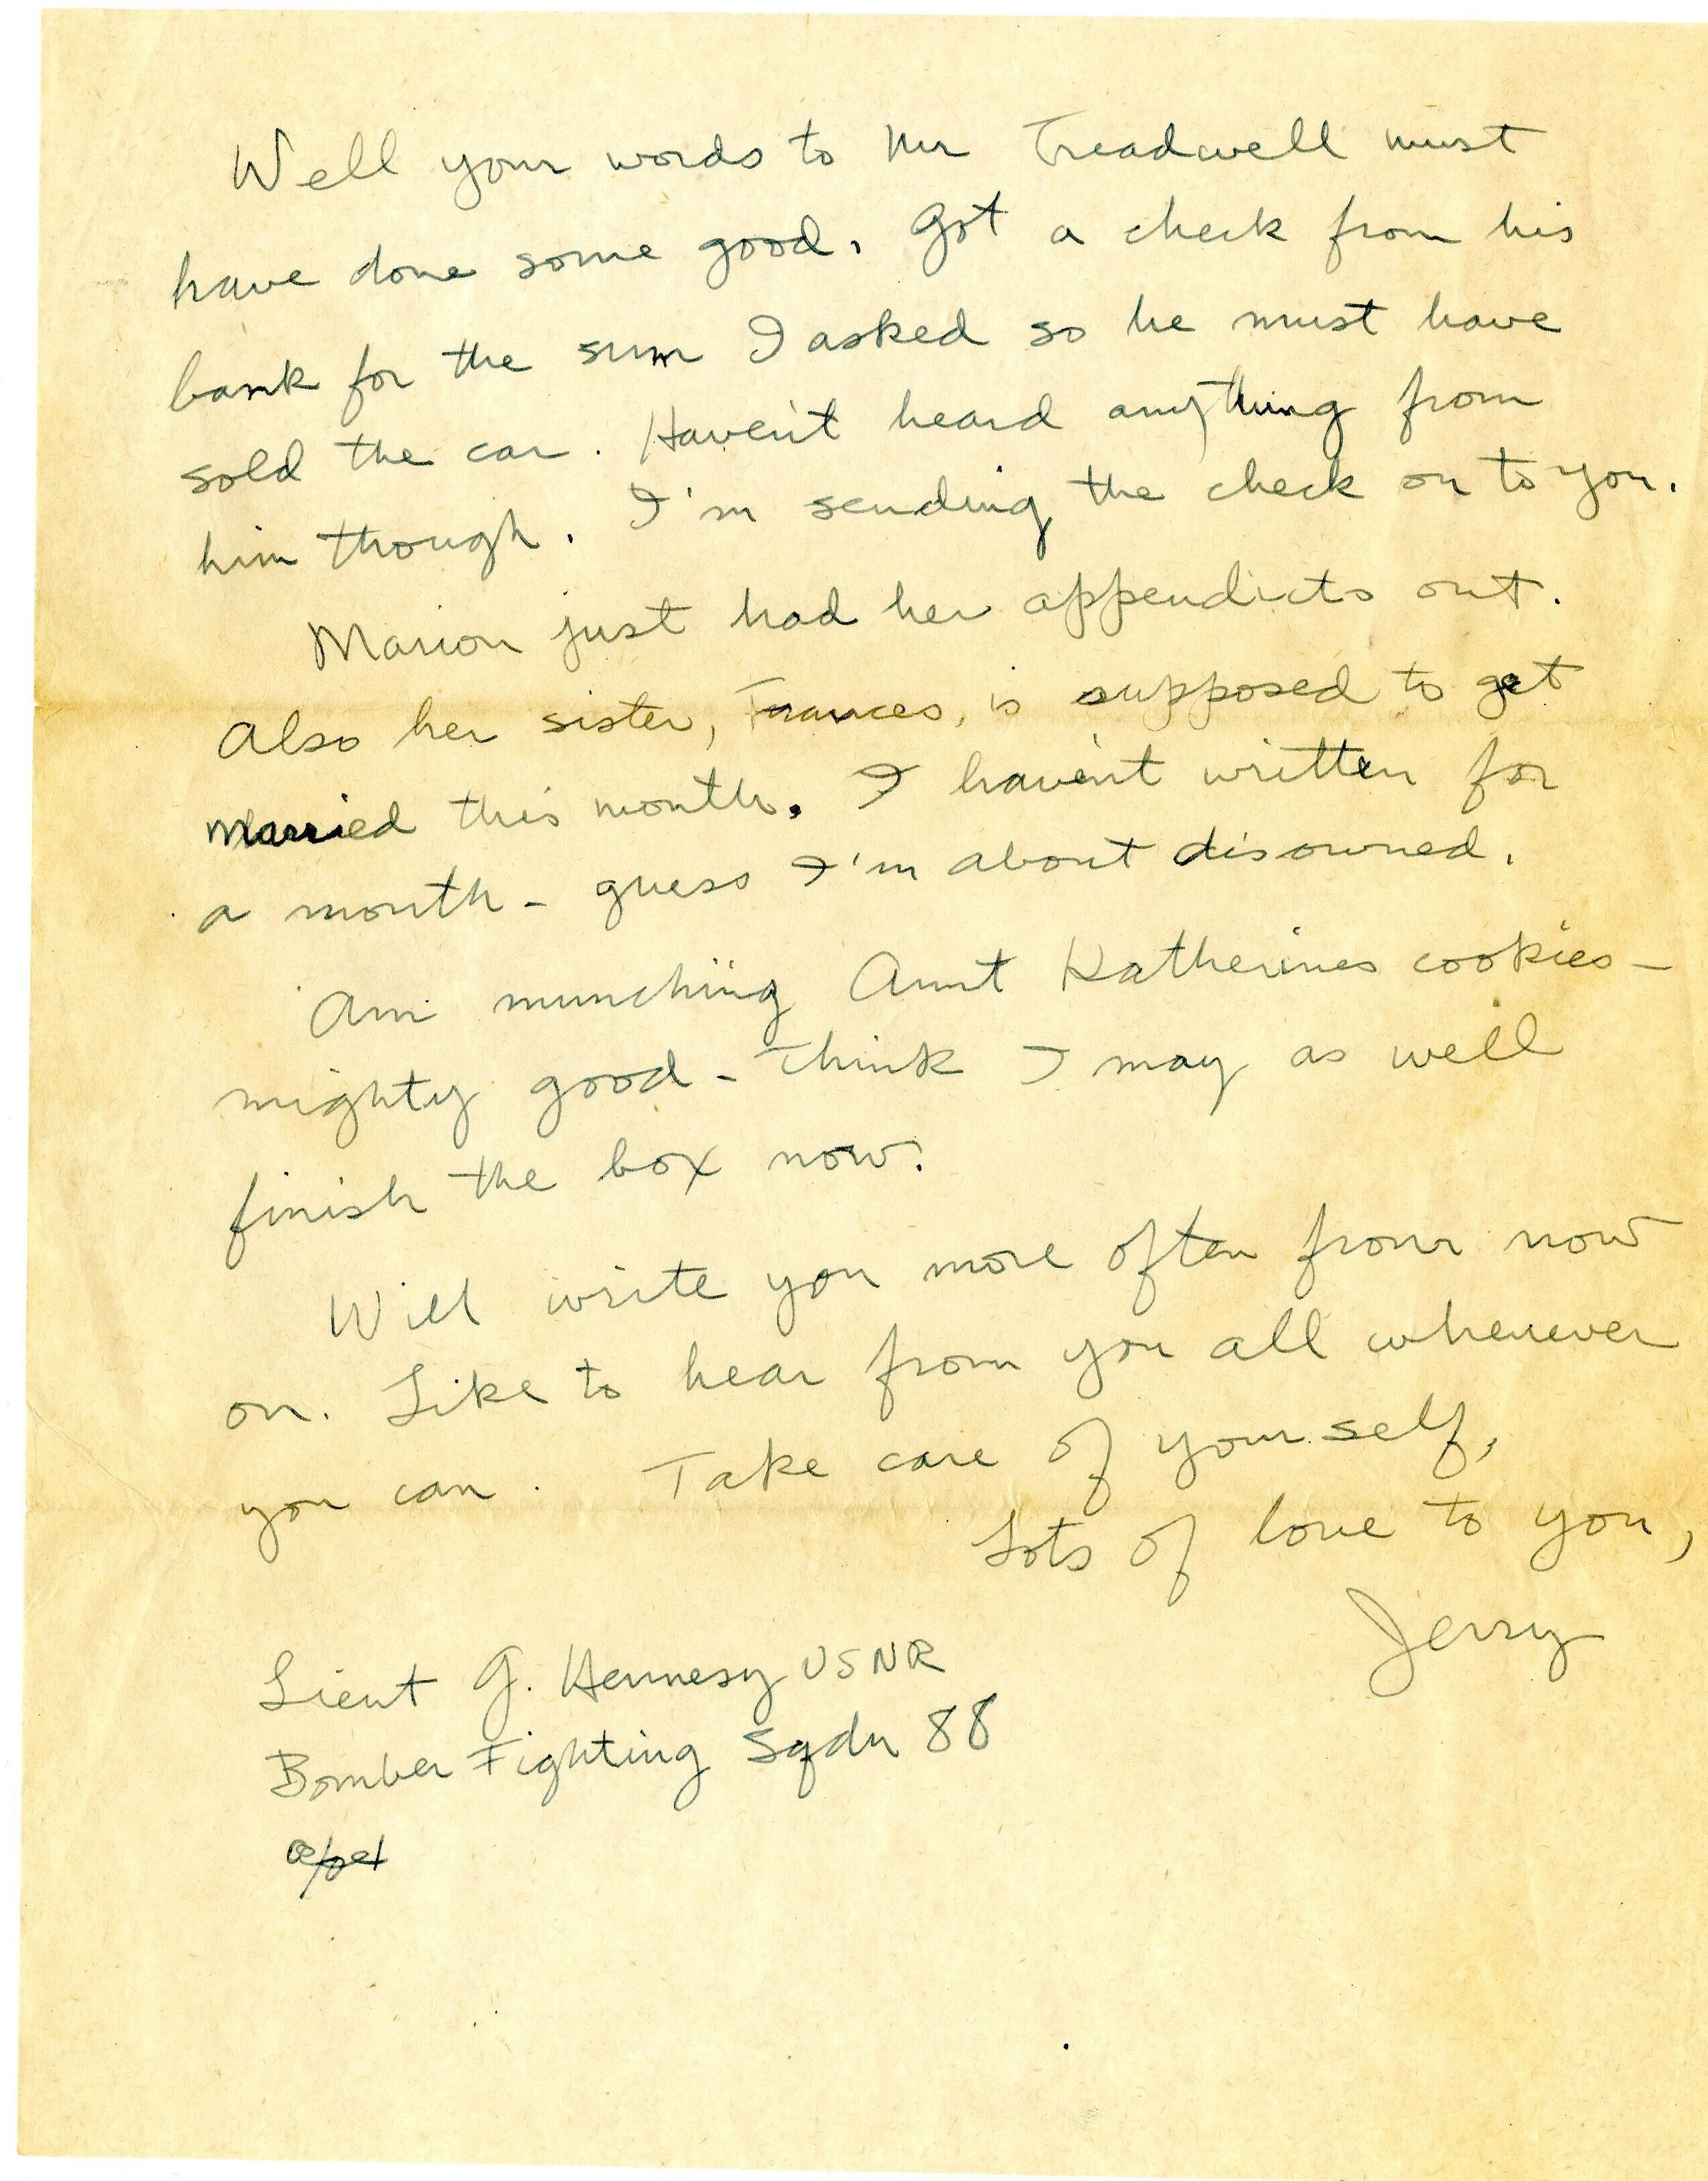 Well your words to Mr Treadwell must
have done some good. Got a check from his
bank for the sum I asked so he must have
sold the car. Haven't heard anything from
him though. I'm sending the check on to you.
Marion just had her appendicts out.
Also her sister, Frances, is supposed to get
married this month. I haven't written for
a month - guess I'm about disowned.
Am munching Aunt Katherines cookies -
mighty good - think I may as well
finish the box now.
Will write you more often from now
on. Like to hear from you all whenever
you can. Take care of yourself,
Lots of love to you,
Jerry
Lieut G. Hennesy USNR
Bomber Fighting Sqdn 88